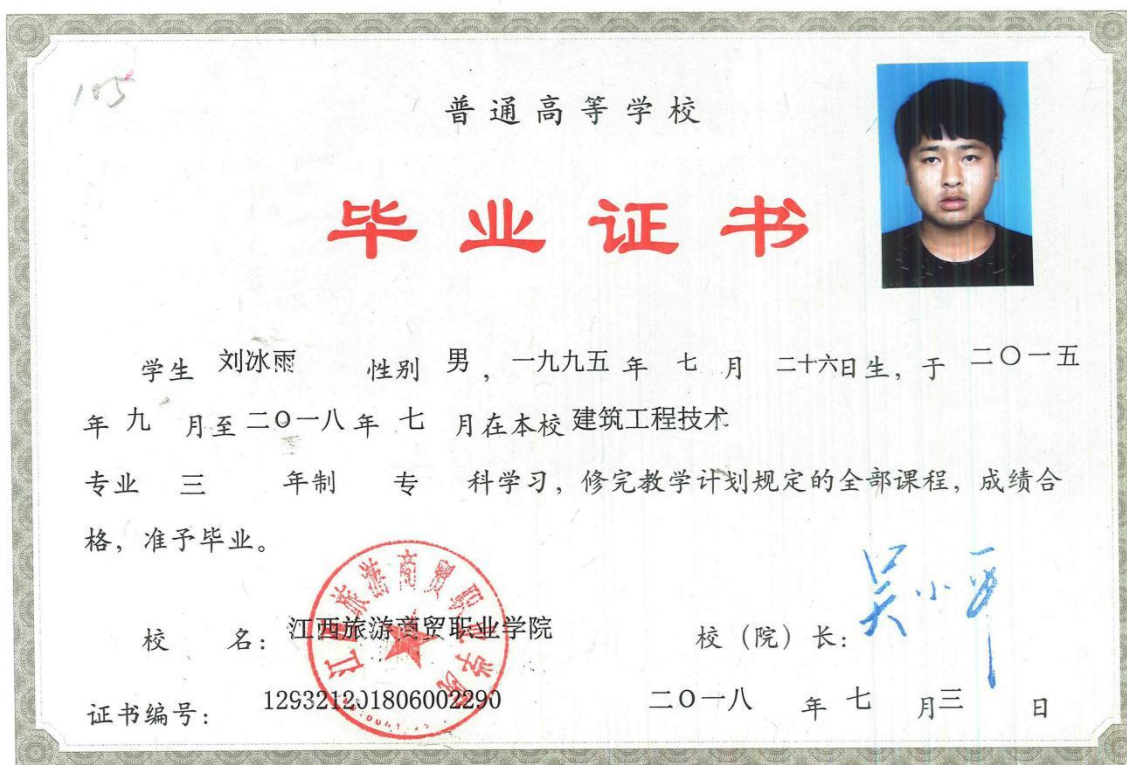 105
普通高等学校
毕业证书
学生 刘冰雨 性别 男，一九九五 年 七 月 二十六日生，于 二〇一五
年 九 月至 二〇一八 年 七 月在本校 建筑工程技术
专业 三 年制 专 科学习，修完教学计划规定的全部课程，成绩合
格，准予毕业。
江西旅游商贸职业学院
校 名：江西旅游商贸职业学院 校（院）长：吴小平
证书编号：129321201806002290 二〇一八 年 七 月三 日